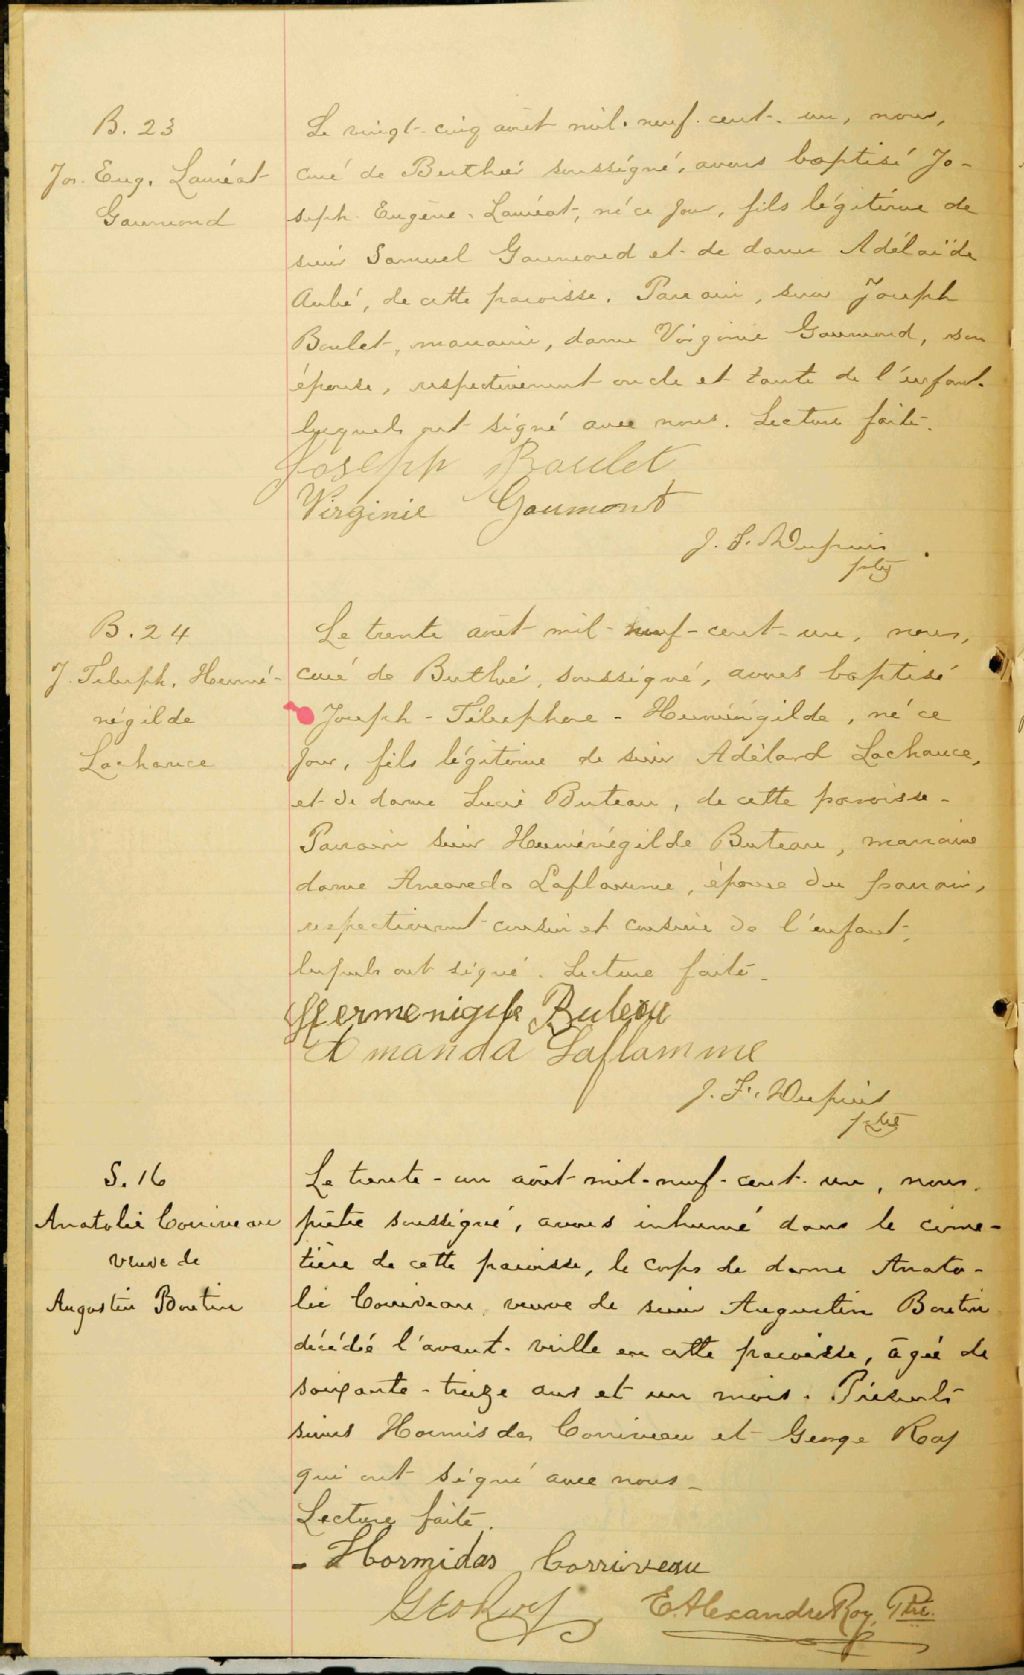 B. 23
Jos. Eug. Lauréat
Gaumond
Le vingt-cinq août mil-neuf-cent-un, nous,
curé de Berthier soussigné, avons baptisé Jo-
seph-Eugène-Lauréat, né ce jour, fils légitime de
sieur Samuel Gaumond et de dame Adélaïde
Aubé, de cette paroisse. Parrain, sieur Joseph
Boulet, marraine, dame Virginie Gaumond, son
épouse, respectivement oncle et tante de l'enfant
lesquels ont signé avec nous. Lecture faite.
Joseph Boulet
Virginie Gaumont
J. F. Dupuis
ptre
B. 24
J. Téleph. Hermé-
négilde
Lachance
Le trente août mil-neuf-cent-un, nous,
curé de Berthier, soussigné, avons baptisé
Joseph-Télesphore-Herménégilde, né ce
jour, fils légitime de sieur Adélard Lachance,
et de dame Lucie Buteau, de cette paroisse-
Parrain sieur Herménégilde Buteau, marraine
dame Amanda Laflamme, épouse du parrain,
respectivement cousin et cousine de l'enfant,
lesquels ont signé. Lecture faite-
Hermenigile Buteau
Amanda Laflamme
J. F. Dupuis
ptre
S. 16
Anatolie Corriveau
veuve de
Augustin Boutin
Le trente-un août mil-neuf-cent-un, nous,
prêtre soussigné, avons inhumé dans le cime-
tière de cette paroisse, le corps de dame Anato-
lie Corriveau, veuve de sieur Augustin Boutin
décédée l'avant-veille en cette paroisse, âgée de
soixante-treize ans et un mois. Présents
sieurs Hormisdas Corriveau et George Roy
qui ont signé avec nous-
Lecture faite.
- Hormidas Corriveau
Geo Roy
E. Alexandre Roy, Ptre.